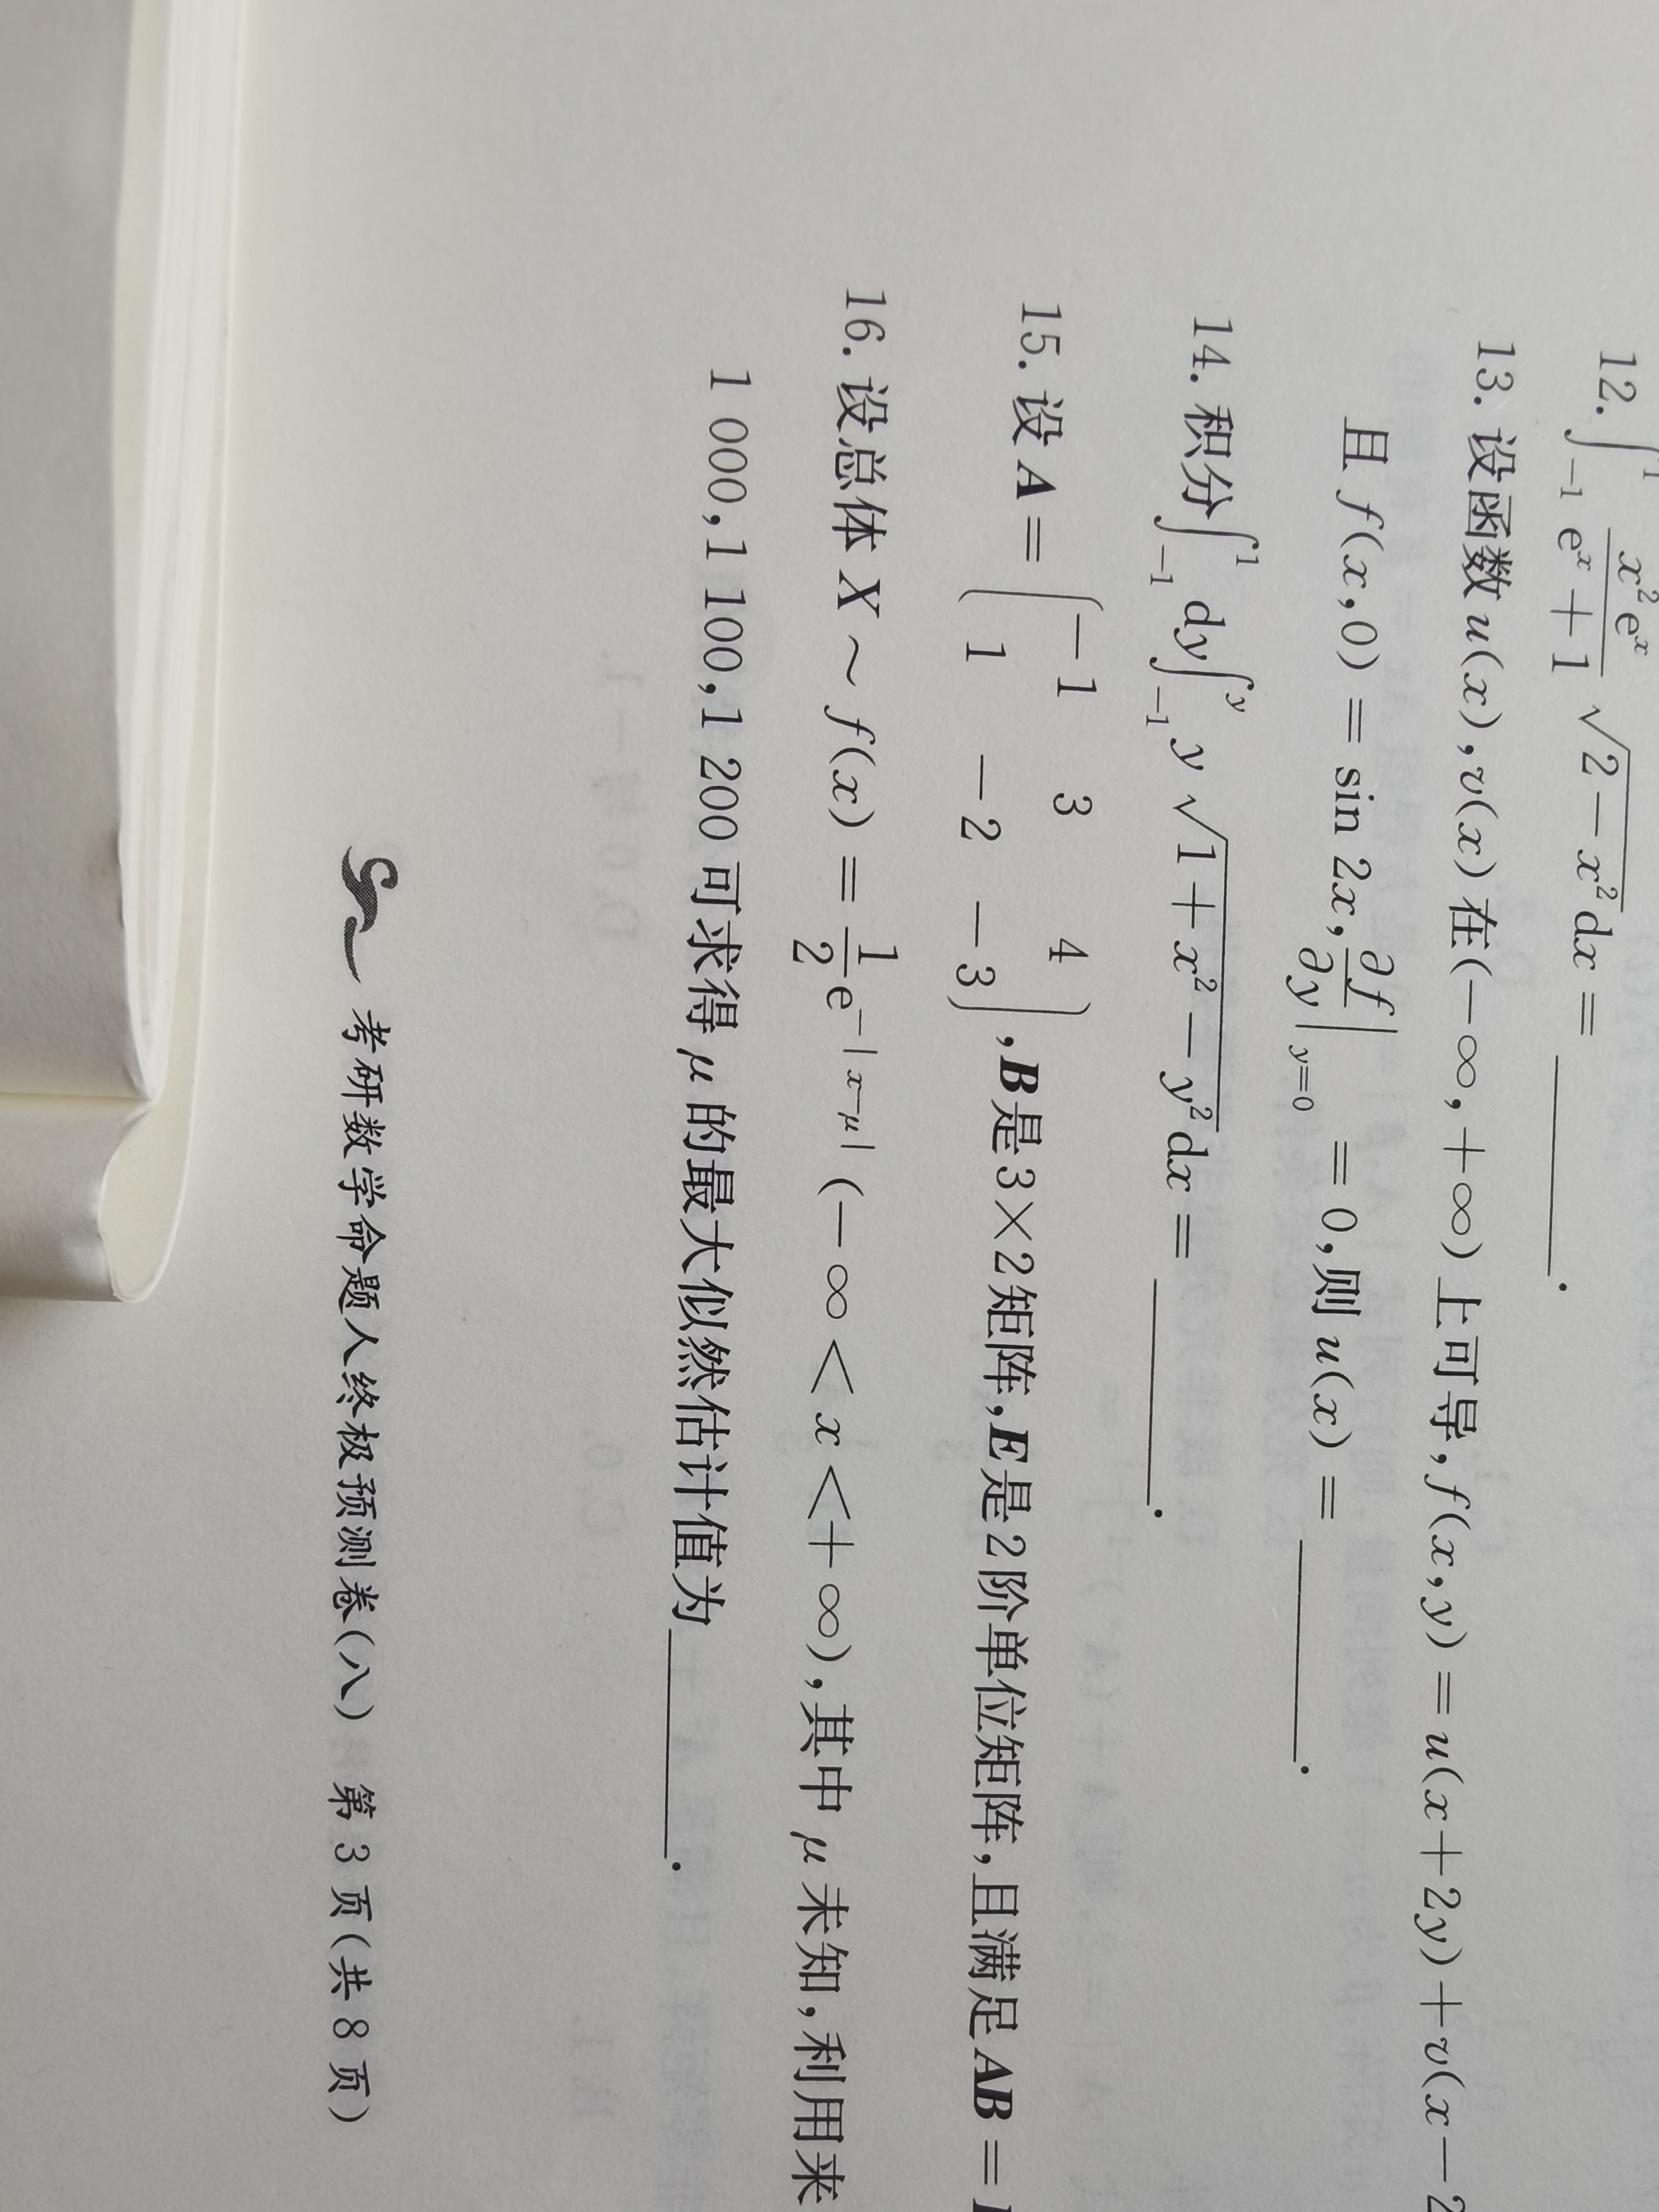 12. ∫₋₁¹ x²eˣ/(eˣ+1) √(2−x²) dx = ______.
13. 设函数 u(x),v(x) 在(−∞,+∞) 上可导,f(x,y) = u(x+2y)+v(x−2
且 f(x,0) = sin 2x, ∂f/∂y|y=0 = 0,则 u(x) = ______.
14. 积分∫₋₁¹ dy∫₋₁ʸ y √(1+x²−y²) dx = ______.
15. 设 A = (−1 3 4; 1 −2 −3), B是3×2矩阵,E是2阶单位矩阵,且满足AB=
16. 设总体 X ~ f(x) = 1/2 e^(−|x−μ|) (−∞ < x < +∞),其中 μ 未知,利用来
1 000,1 100,1 200 可求得 μ 的最大似然估计值为______.
考研数学命题人终极预测卷(八) 第 3 页(共 8 页)